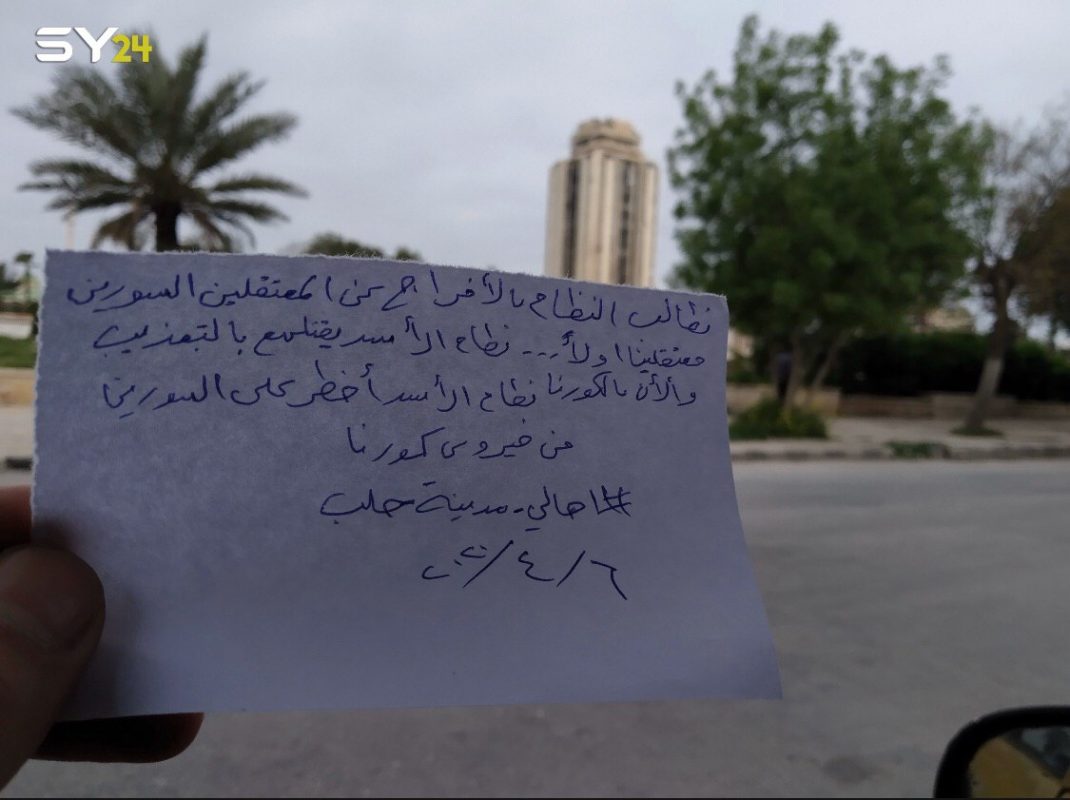 SY24
نطالب النظام بالأفراج عن المعتقلين السورين
معتقلينا اولاً... نظام الأسد يقتلهم بالتعذيب
والأن بالكورنا نظام الأسد أخطر على السورين
من فيروس كورنا
#اهالي_مدينة حلب
٦/٤/٢٠٢٠